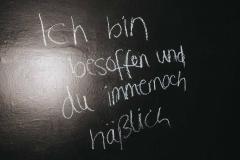 Ich bin
besoffen und
du immernoch
häßlich